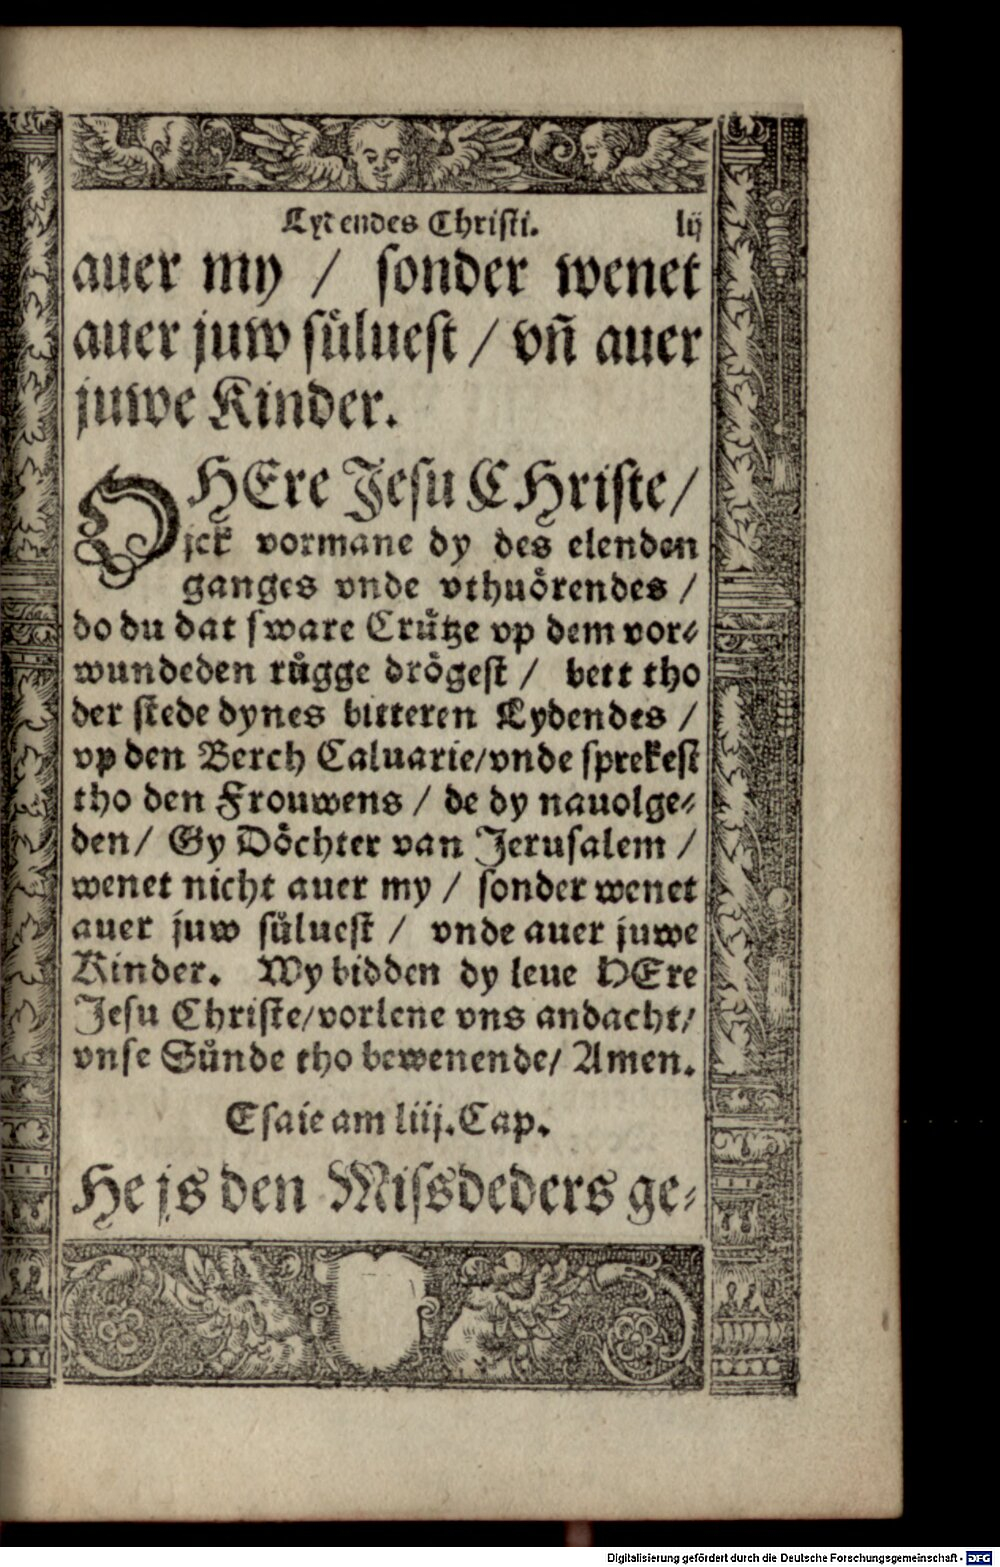 Lydendes Christi. lij
auer my / sonder wenet
auer juw sůluest / vñ auer
juwe Kinder.
O HEre Jesu CHriste /
jck vormane dy des elenden
ganges vnde vthuörendes /
do du dat sware Crütze vp dem vor⸗
wundeden růgge drögest / bett tho
der stede dynes bitteren Lydendes /
vp den Berch Caluarie/vnde sprekest
tho den Frouwens / de dy nauolge⸗
den/ Gy Döchter van Jerusalem /
wenet nicht auer my / sonder wenet
auer juw sůluest / vnde auer juwe
Kinder. Wy bidden dy leue HEre
Jesu Christe/vorlene vns andacht/
vnse Sůnde tho bewenende/ Amen.
Esaie am liij. Cap.
He js den Missdeders ge⸗
Digitalisierung gefördert durch die Deutsche Forschungsgemeinschaft - DFG